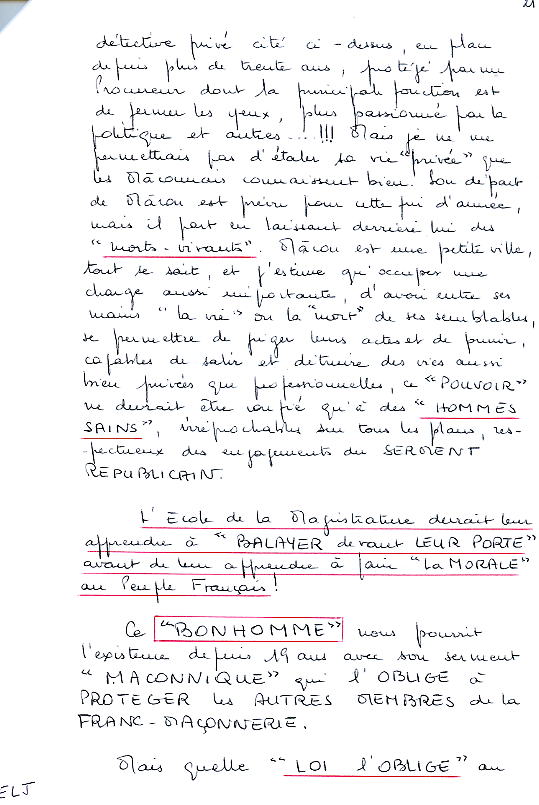 21
détective privé cité ci-dessus, en place
depuis plus de trente ans, protégé par un
Procureur dont la principale fonction est
de fermer les yeux, plus passionné par la
politique et autres....!!! Mais je ne me
permettrais pas d'étaler sa vie "privée" que
les Mâconnais connaissent bien. Son départ
de Mâcon est prévu pour cette fin d'année,
mais il part en laissant derrière lui des
"morts-vivants". Mâcon est une petite ville,
tout se sait, et j'estime qu'occuper une
charge aussi importante, d'avoir entre ses
mains "la vie" ou la "mort" de ses semblables,
se permettre de juger leurs actes et de punir,
capables de salir et détruire des vies aussi
bien privées que professionnelles, ce "POUVOIR"
ne devrait être confié qu'à des "HOMMES
SAINS", irréprochables sur tous les plans, res-
-pectueux des engagements du SERMENT
REPUBLICAIN.
L'Ecole de la Magistrature devrait leur
apprendre à "BALAYER devant LEUR PORTE"
avant de leur apprendre à faire "la MORALE"
au Peuple Français!
Ce "BONHOMME" nous pourrit
l'existence depuis 19 ans avec son serment
"MACONNIQUE" qui l'OBLIGE à
PROTEGER les AUTRES MEMBRES de la
FRANC-MAÇONNERIE.
Mais quelle "LOI l'OBLIGE" au
ELJ